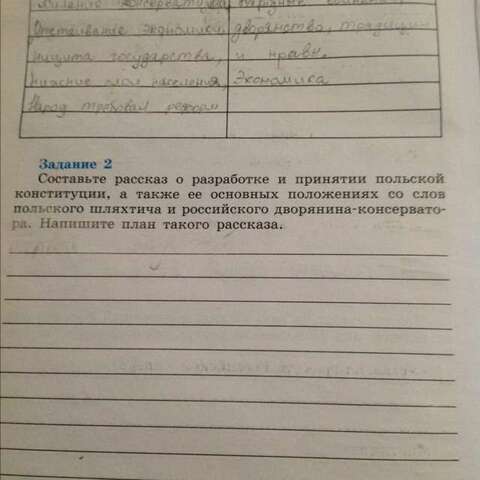 Отставание экономики, дворянство, традиции
защита государства, и нравы.
низшие слои населения, Экономика
Народ требовал реформ
Задание 2
Составьте рассказ о разработке и принятии польской
конституции, а также ее основных положениях со слов
польского шляхтича и российского дворянина-консервато-
ра. Напишите план такого рассказа.